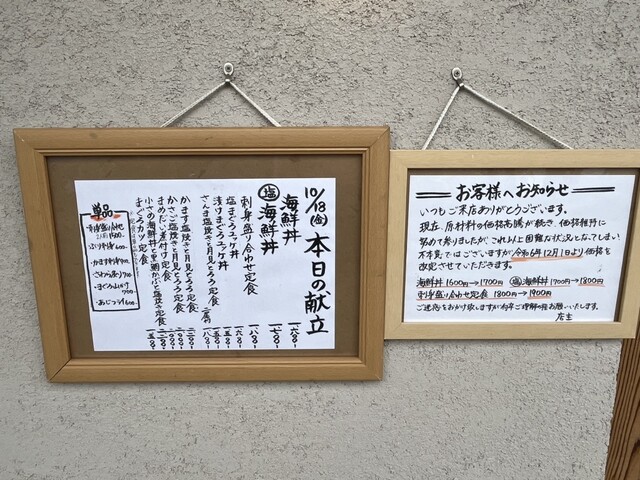 10/18(金) 本日の献立
海鮮丼 一六〇〇
塩 海鮮丼 一七〇〇
刺身盛り合わせ定食 一八〇〇
塩まぐろユッケ丼
漬けまぐろユッケ丼
さんま塩焼きと月見とろろ定食
かます塩焼きと月見とろろ定食
かさご塩焼きと月見とろろ定食
まめだい煮付け定食
小さめ海鮮丼と黒鯛かぶと塩焼き定食
まぐろカツ定食
単品
刺身盛り合わせ
1500.
ぶり刺身 1600.
かます刺身 900.
さわら炙り 900.
まぐろユッケ
700.
あじフライ 600.
お客様へお知らせ
いつもご来店ありがとうございます。
現在、原材料の価格高騰が続き、価格維持に
努めて参りましたが、これ以上困難な状況となってしまい
不本意ではございますが令和6年12月1日より価格を
改定させていただきます。
海鮮丼 1600円→1700円 塩 海鮮丼 1700円→1800円
刺身盛り合わせ定食 1800円→1900円
ご迷惑をおかけ致しますが何卒ご理解の程お願いいたします。
店主